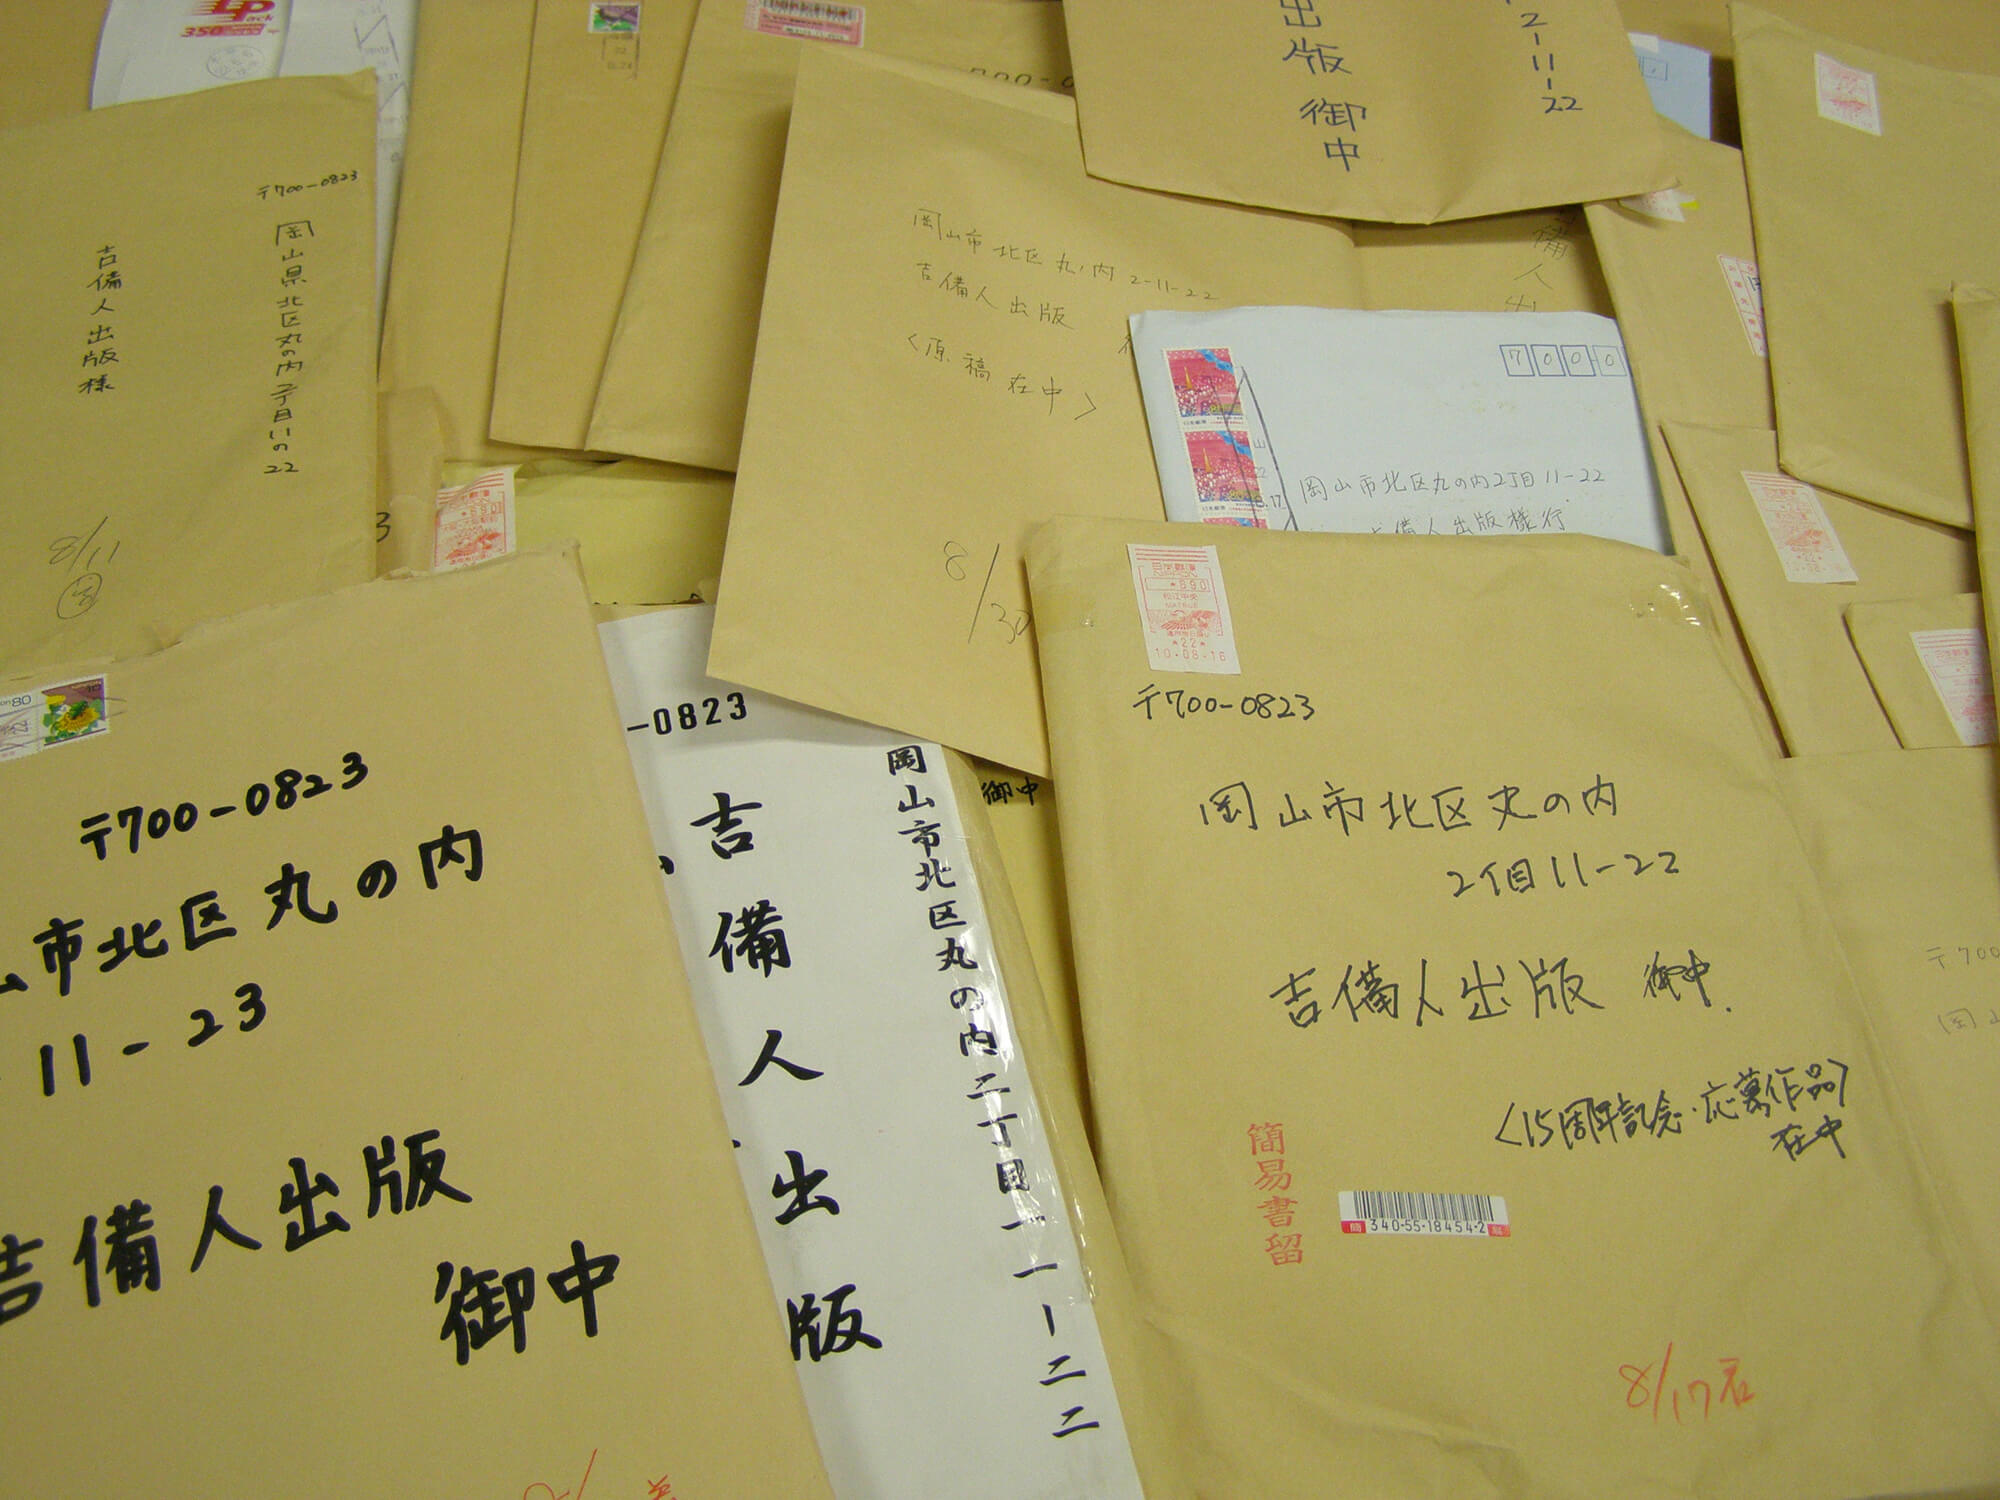 Pack
350
〒700-0823
岡山県北区丸の内2丁目11の22
吉備人出版様
8/11
岡山市北区丸ノ内2-11-22
吉備人出版
〈原稿在中〉
8/30
出版御中
2-11-22
備人
700-0
岡山市北区丸の内2丁目11-22
吉備人出版様行
日本郵便
NIPPON
*690
松江中央
MATSUE
*22*
10-08-16
〒700-0823
岡山市北区丸の内
2丁目11-22
吉備人出版 御中
〈15周年記念・応募作品〉
在中
簡易書留
340-55-18454-2
8/17
-0823
岡山市北区丸の内二丁目一一ー二二
吉備人出版
御中
〒700-0823
山市北区丸の内
11-23
吉備人出版
御中
〒700
岡山